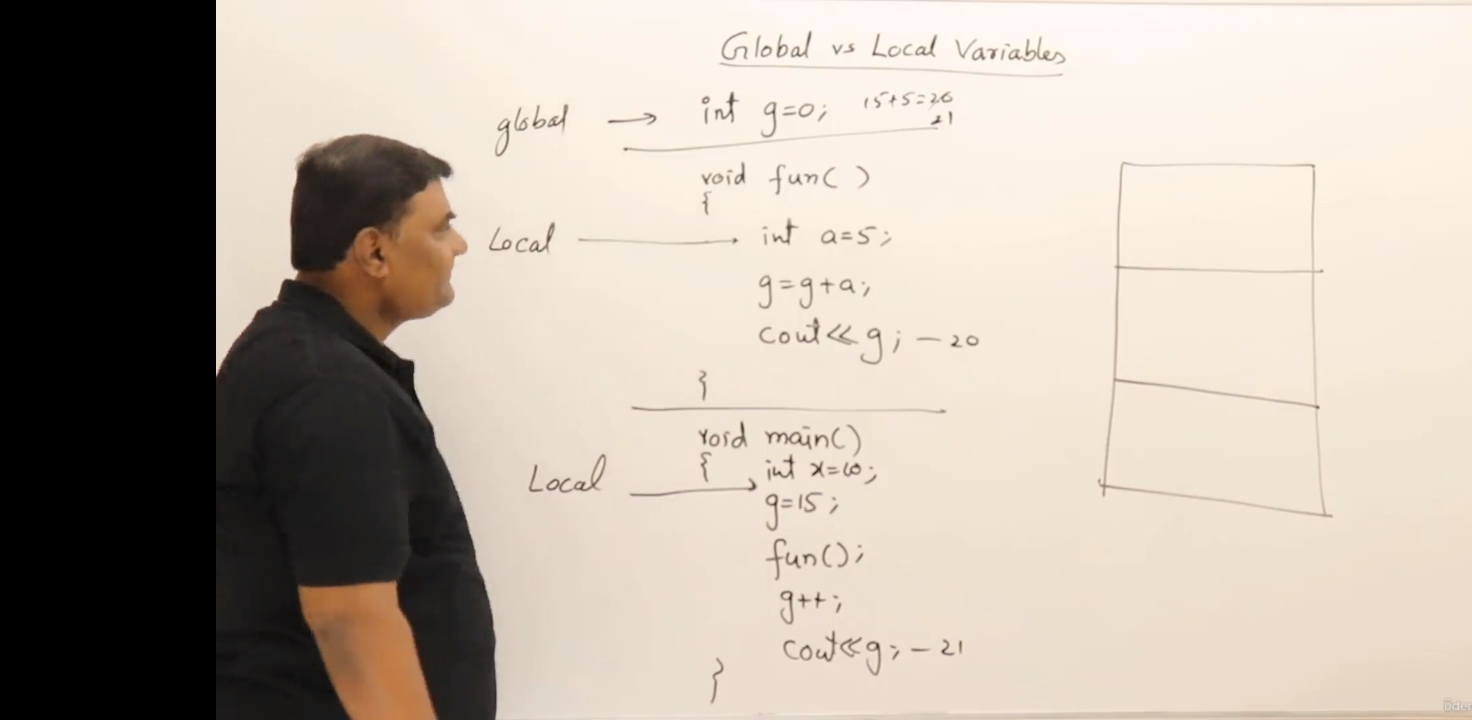 Global vs Local Variables
global → int g=0; 15+5=20
21
void fun( )
{
Local → int a=5;
g=g+a;
cout<<g; - 20
}
void main()
{ int x=10;
Local → g=15;
fun();
g++;
cout<<g; - 21
}